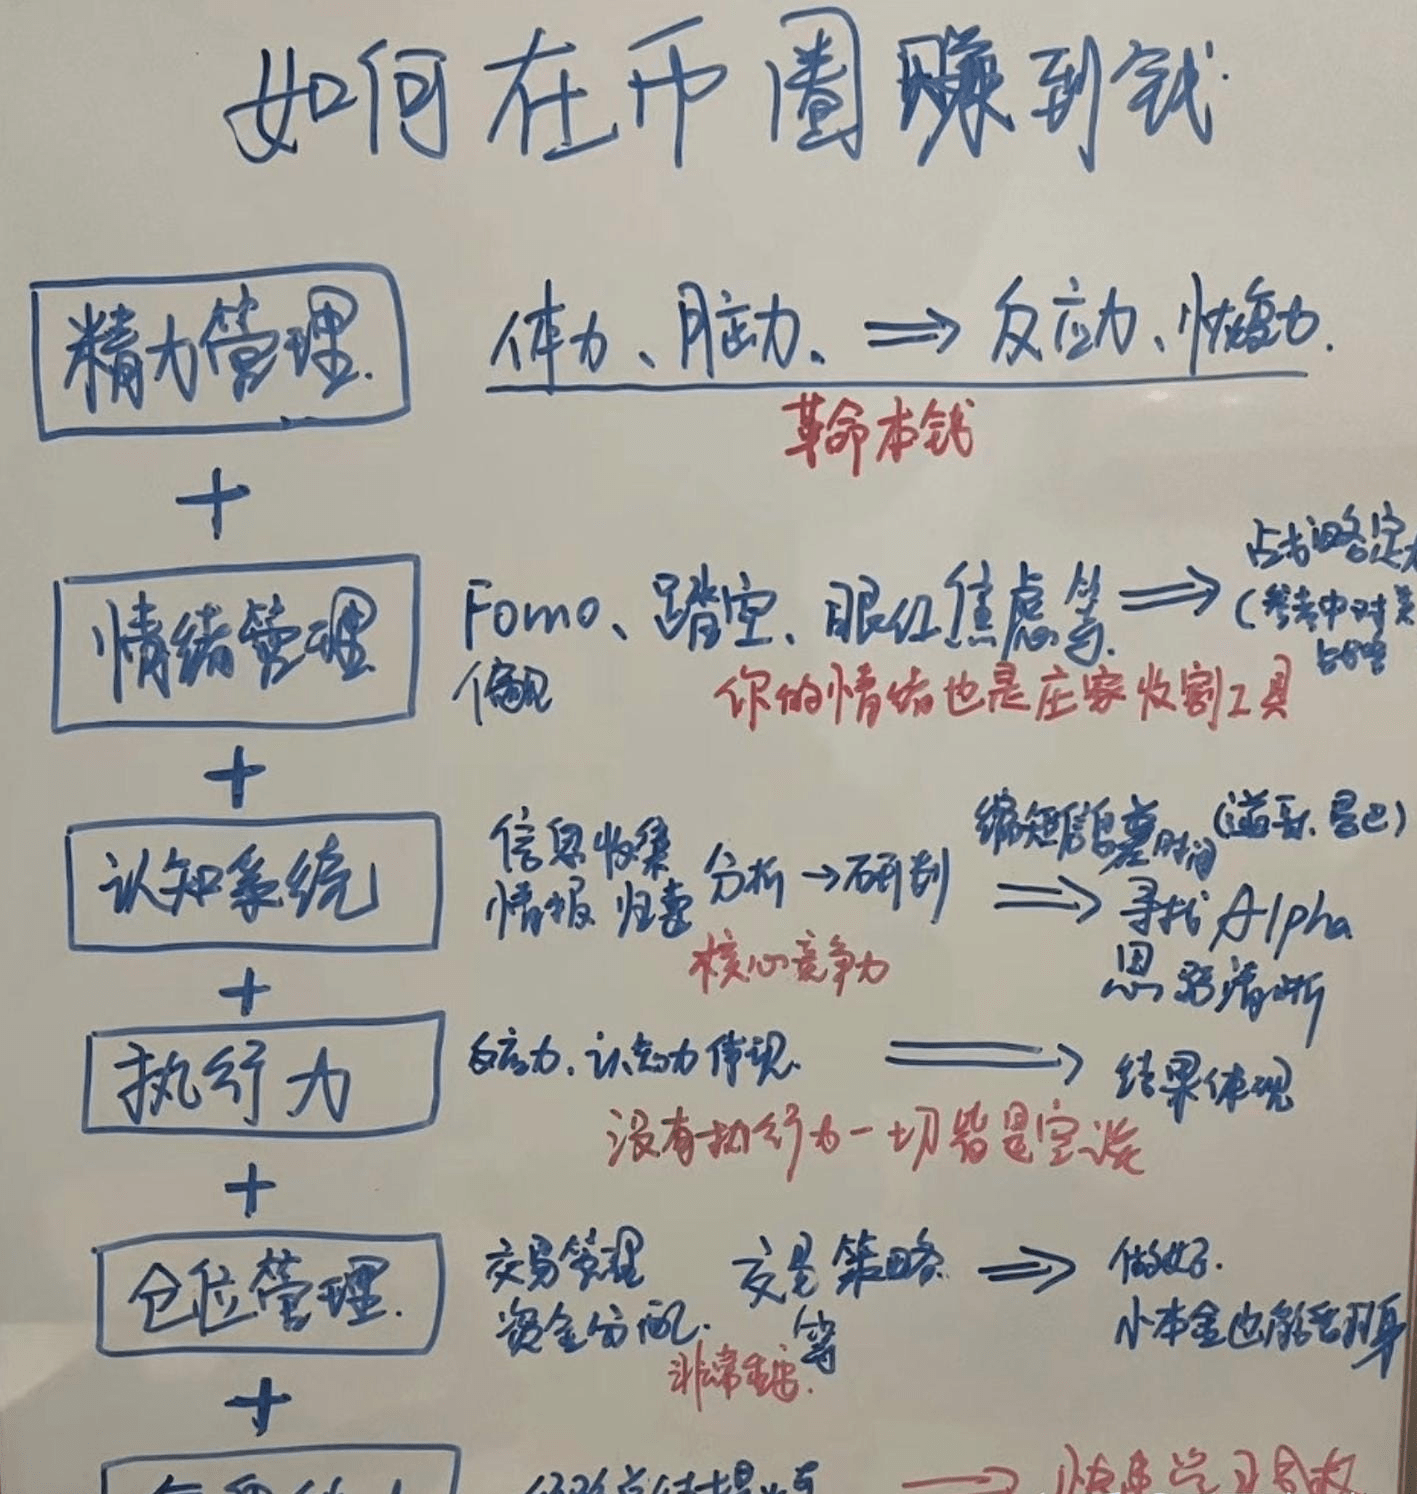 如何在币圈赚到钱.
精力管理. 体力、脑力、⟹ 反应力、恢复力.
革命本钱
+
情绪管理 Fomo、踏空、眼红焦虑等. ⟹
偏见
你的情绪也是庄家收割工具
+
认知系统 信息收集 情报归集 分析 → 研判 ⟹ 缩短信息差时间
寻找 Alpha
思路清晰
核心竞争力
+
执行力 反应力、认知力体现. ⟹ 结果体现
没有执行力一切皆是空谈
+
仓位管理. 交易管理 交易策略 ⟹ 做好.
资金分配. 等 小本金也能翻身
非常重要.
+